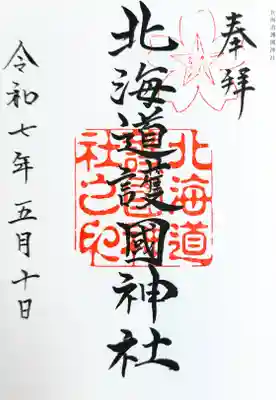 奉拝
北海道護國神社
令和七年五月十日
北海道護國神社之印